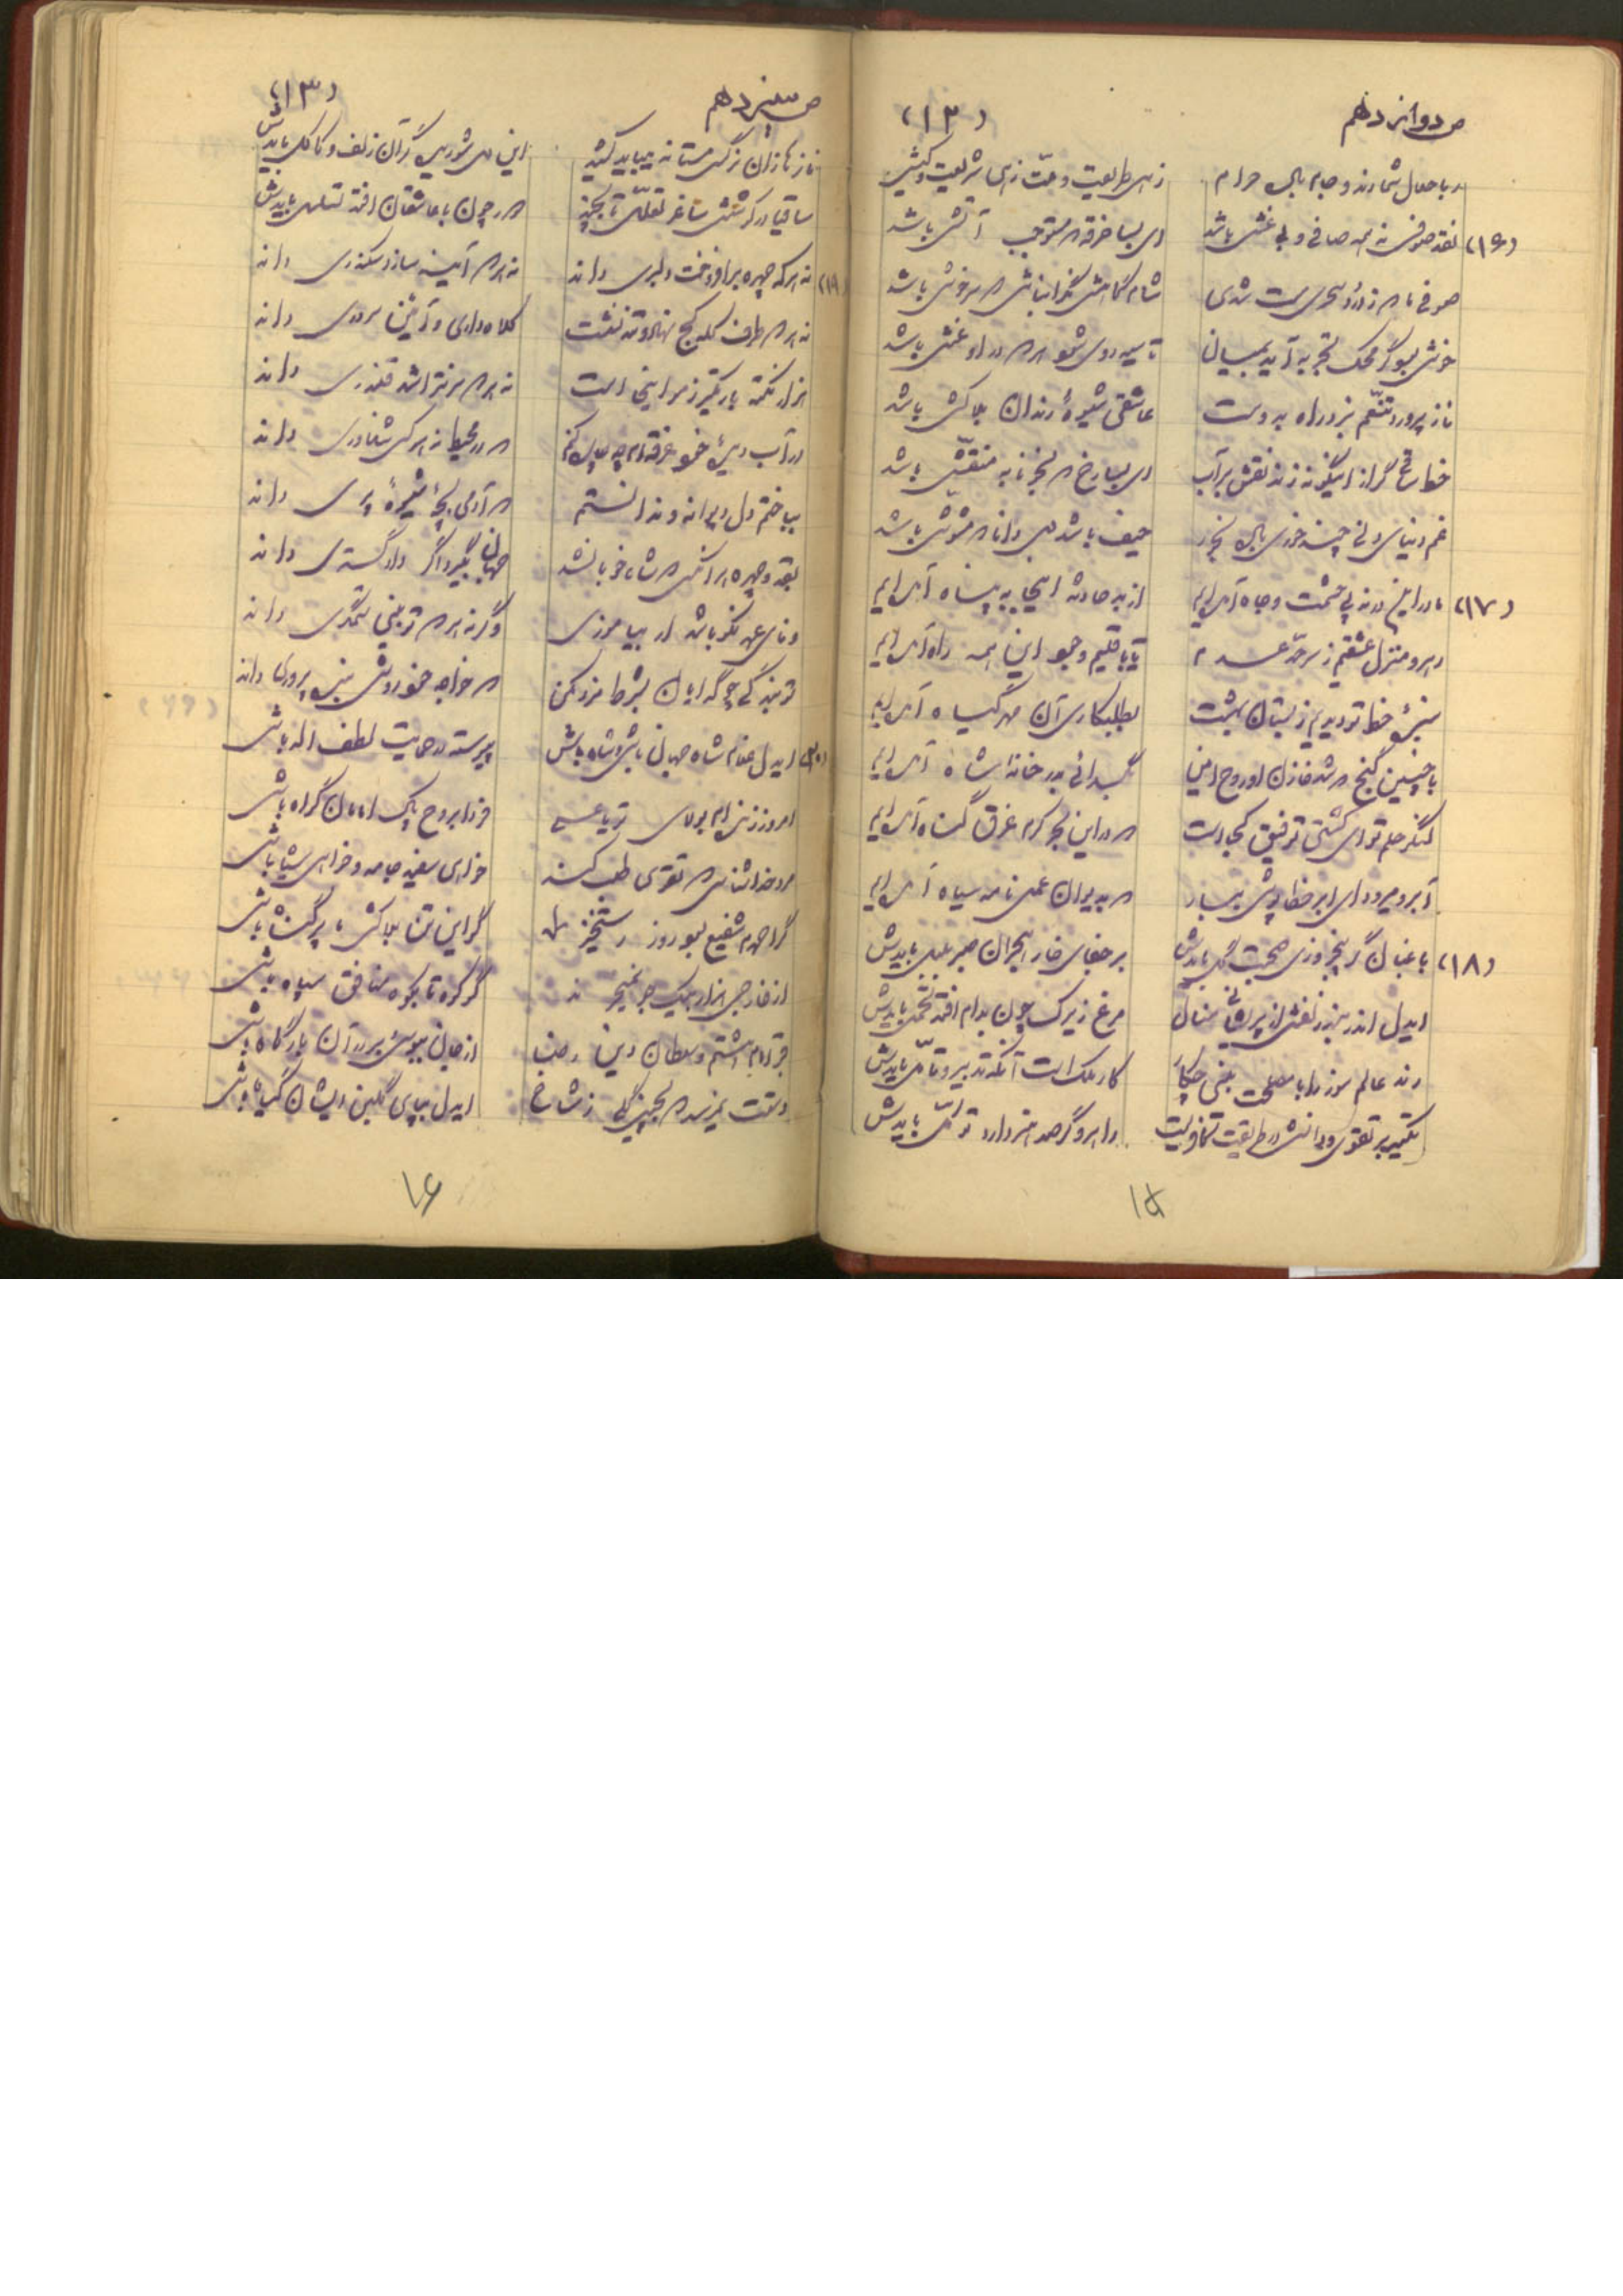 ص دوانزدهم (۱۲)
ربا حلال شمارند و جام باده حرام زهی طریقت و ملت زهی شریعت و کیش
(۱۶) نقد صوفی نه همه صافی و بی غش باشد ای بسا خرقه که مستوجب آتش باشد
صوفی ما که ز ورد سحری مست شدی شامگاهش نگران باش که سرخوش باشد
خوش بود گر محک تجربه آید بمیان تا سیه روی شود هر که در او غش باشد
ناز پرورد تنعّم نبرد راه بدوست عاشقی شیوهٔ رندان بلاکش باشد
خط ساقی گر از اینگونه زند نقش بر آب ای بسا رخ که بخونابه منقّش باشد
غم دنیای دنی چند خوری باده بخور حیف باشد دل دانا که مشوّش باشد
(۱۷) ما در این در نه پی حشمت و جاه آمده‌ایم از بد حادثه اینجا به پناه آمده‌ایم
رهرو منزل عشقیم ز سرحدّ عدم تا باقلیم وجود این همه راه آمده‌ایم
سبزهٔ خط تو دیدیم ز بستان بهشت بطلبکاری آن مهر گیاه آمده‌ایم
با چنین گنج که شد خازن او روح امین بگدائی بدر خانه شاه آمده‌ایم
لنگر حلم تو ای کشتی توفیق کجاست که در این بحر کرم غرق گناه آمده‌ایم
آبرو میرود ای ابر خطا پوش ببار که بدیوان عمل نامه سیاه آمده‌ایم
(۱۸) باغبان گر پنجروزی صحبت گل بایدش بر جفای خار هجران صبر بلبل بایدش
ایدل اندر بند زلفش از پریشانی منال مرغ زیرک چون بدام افتد تحمّل بایدش
رند عالم سوز را با مصلحت بینی چکار کار ملک است آنکه تدبیر و تأمّل بایدش
تکیه بر تقوی و دانش در طریقت کافریست راهرو گر صد هنر دارد توکّل بایدش
۱۵
ص سیزدهم (۱۳)
نازها زان نرگس مستانه میباید کشید این دل شوریده گر آن زلف و کاکل بایدش
ساقیا در گردش ساغر تعلّل تا بچند دور چون با عاشقان افتد تسلسل بایدش
(۱۹) نه هر که چهره برافروخت دلبری داند نه هر که آینه سازد سکندری داند
نه هر که طرف کله کج نهاد و تند نشست کلاه داری و آئین سروری داند
هزار نکتهٔ باریکتر ز مو اینجا است نه هر که سر بتراشد قلندری داند
در آب دیدهٔ خود غرقه‌ام چه چاره کنم که در محیط نه هر کس شناوری داند
بباختم دل دیوانه و ندانستم که آدمی بچهٔ شیوهٔ پری داند
بقد و چهره هر آنکس که شاه خوبان شد جهان بگیرد اگر دادگستری داند
وفای عهد نکو باشد ار بیاموزی وگرنه هر که تو بینی ستمگری داند
تو بندگی چو گدایان بشرط مزد مکن که خواجه خود روش بنده پروری داند
(۲۰) ایدل غلام شاه جهان باش و شاه باش پیوسته در حمایت لطف اله باش
امروز زنده‌ام بولای تو یا علی فردا بروح پاک امامان گواه باش
مرد خداشناس که تقوی طلب کند خواهی سفید جامه و خواهی سیاه باش
گر احمدم شفیع بود روز رستخیز گو این تن بلاکش ما پر گناه باش
از خارجی هزار بیک جو نمیخرند گو کوه تا بکوه منافق سپاه باش
قبر امام هشتم و سلطان دین رضا از جان ببوس و بر در آن بارگاه باش
دستت نمیرسد که بچینی گلی ز شاخ ایدل بپای گلبن ایشان گیاه باش
۱۶